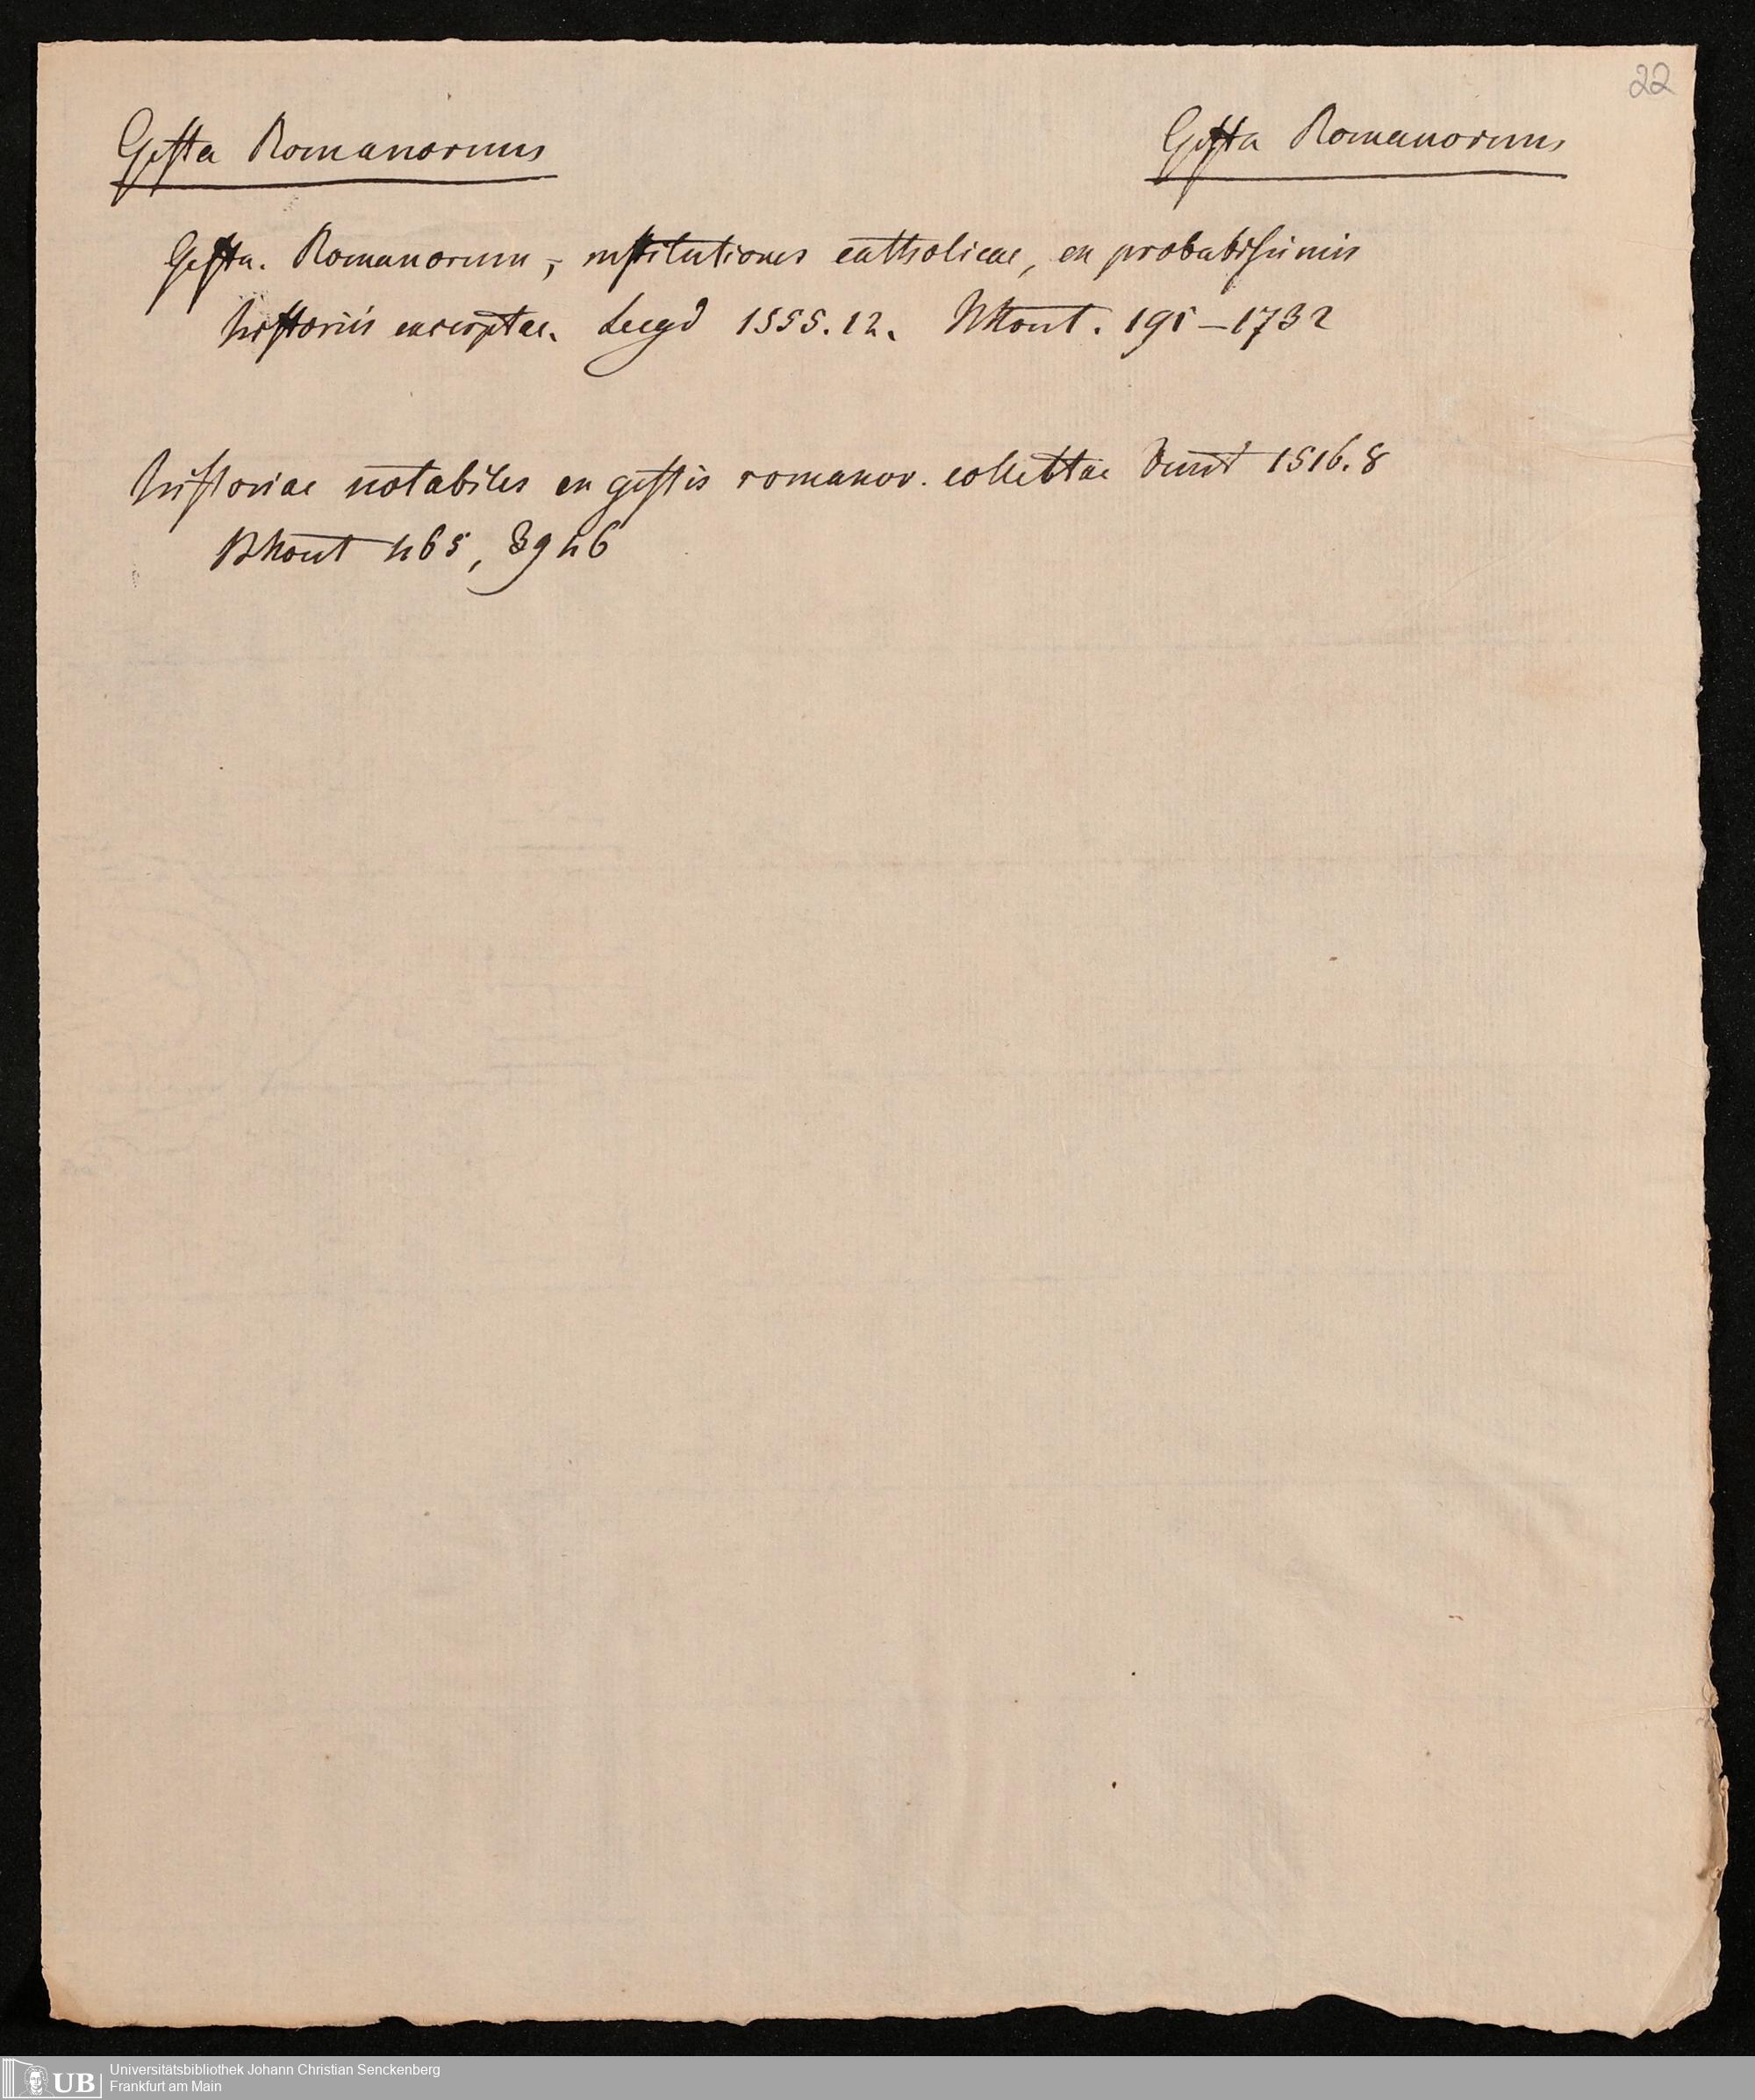 22
Gesta Romanorum Gesta Romanorum
Gesta. Romanorum, institutiones catholicae, ex probatissimis
historiis excerptae. Lugd 1555. 12. 195–1732
historiae notabiles ex gestis romanor. collectae 1516. 8
465, 3946
UB Universitätsbibliothek Johann Christian Senckenberg
Frankfurt am Main